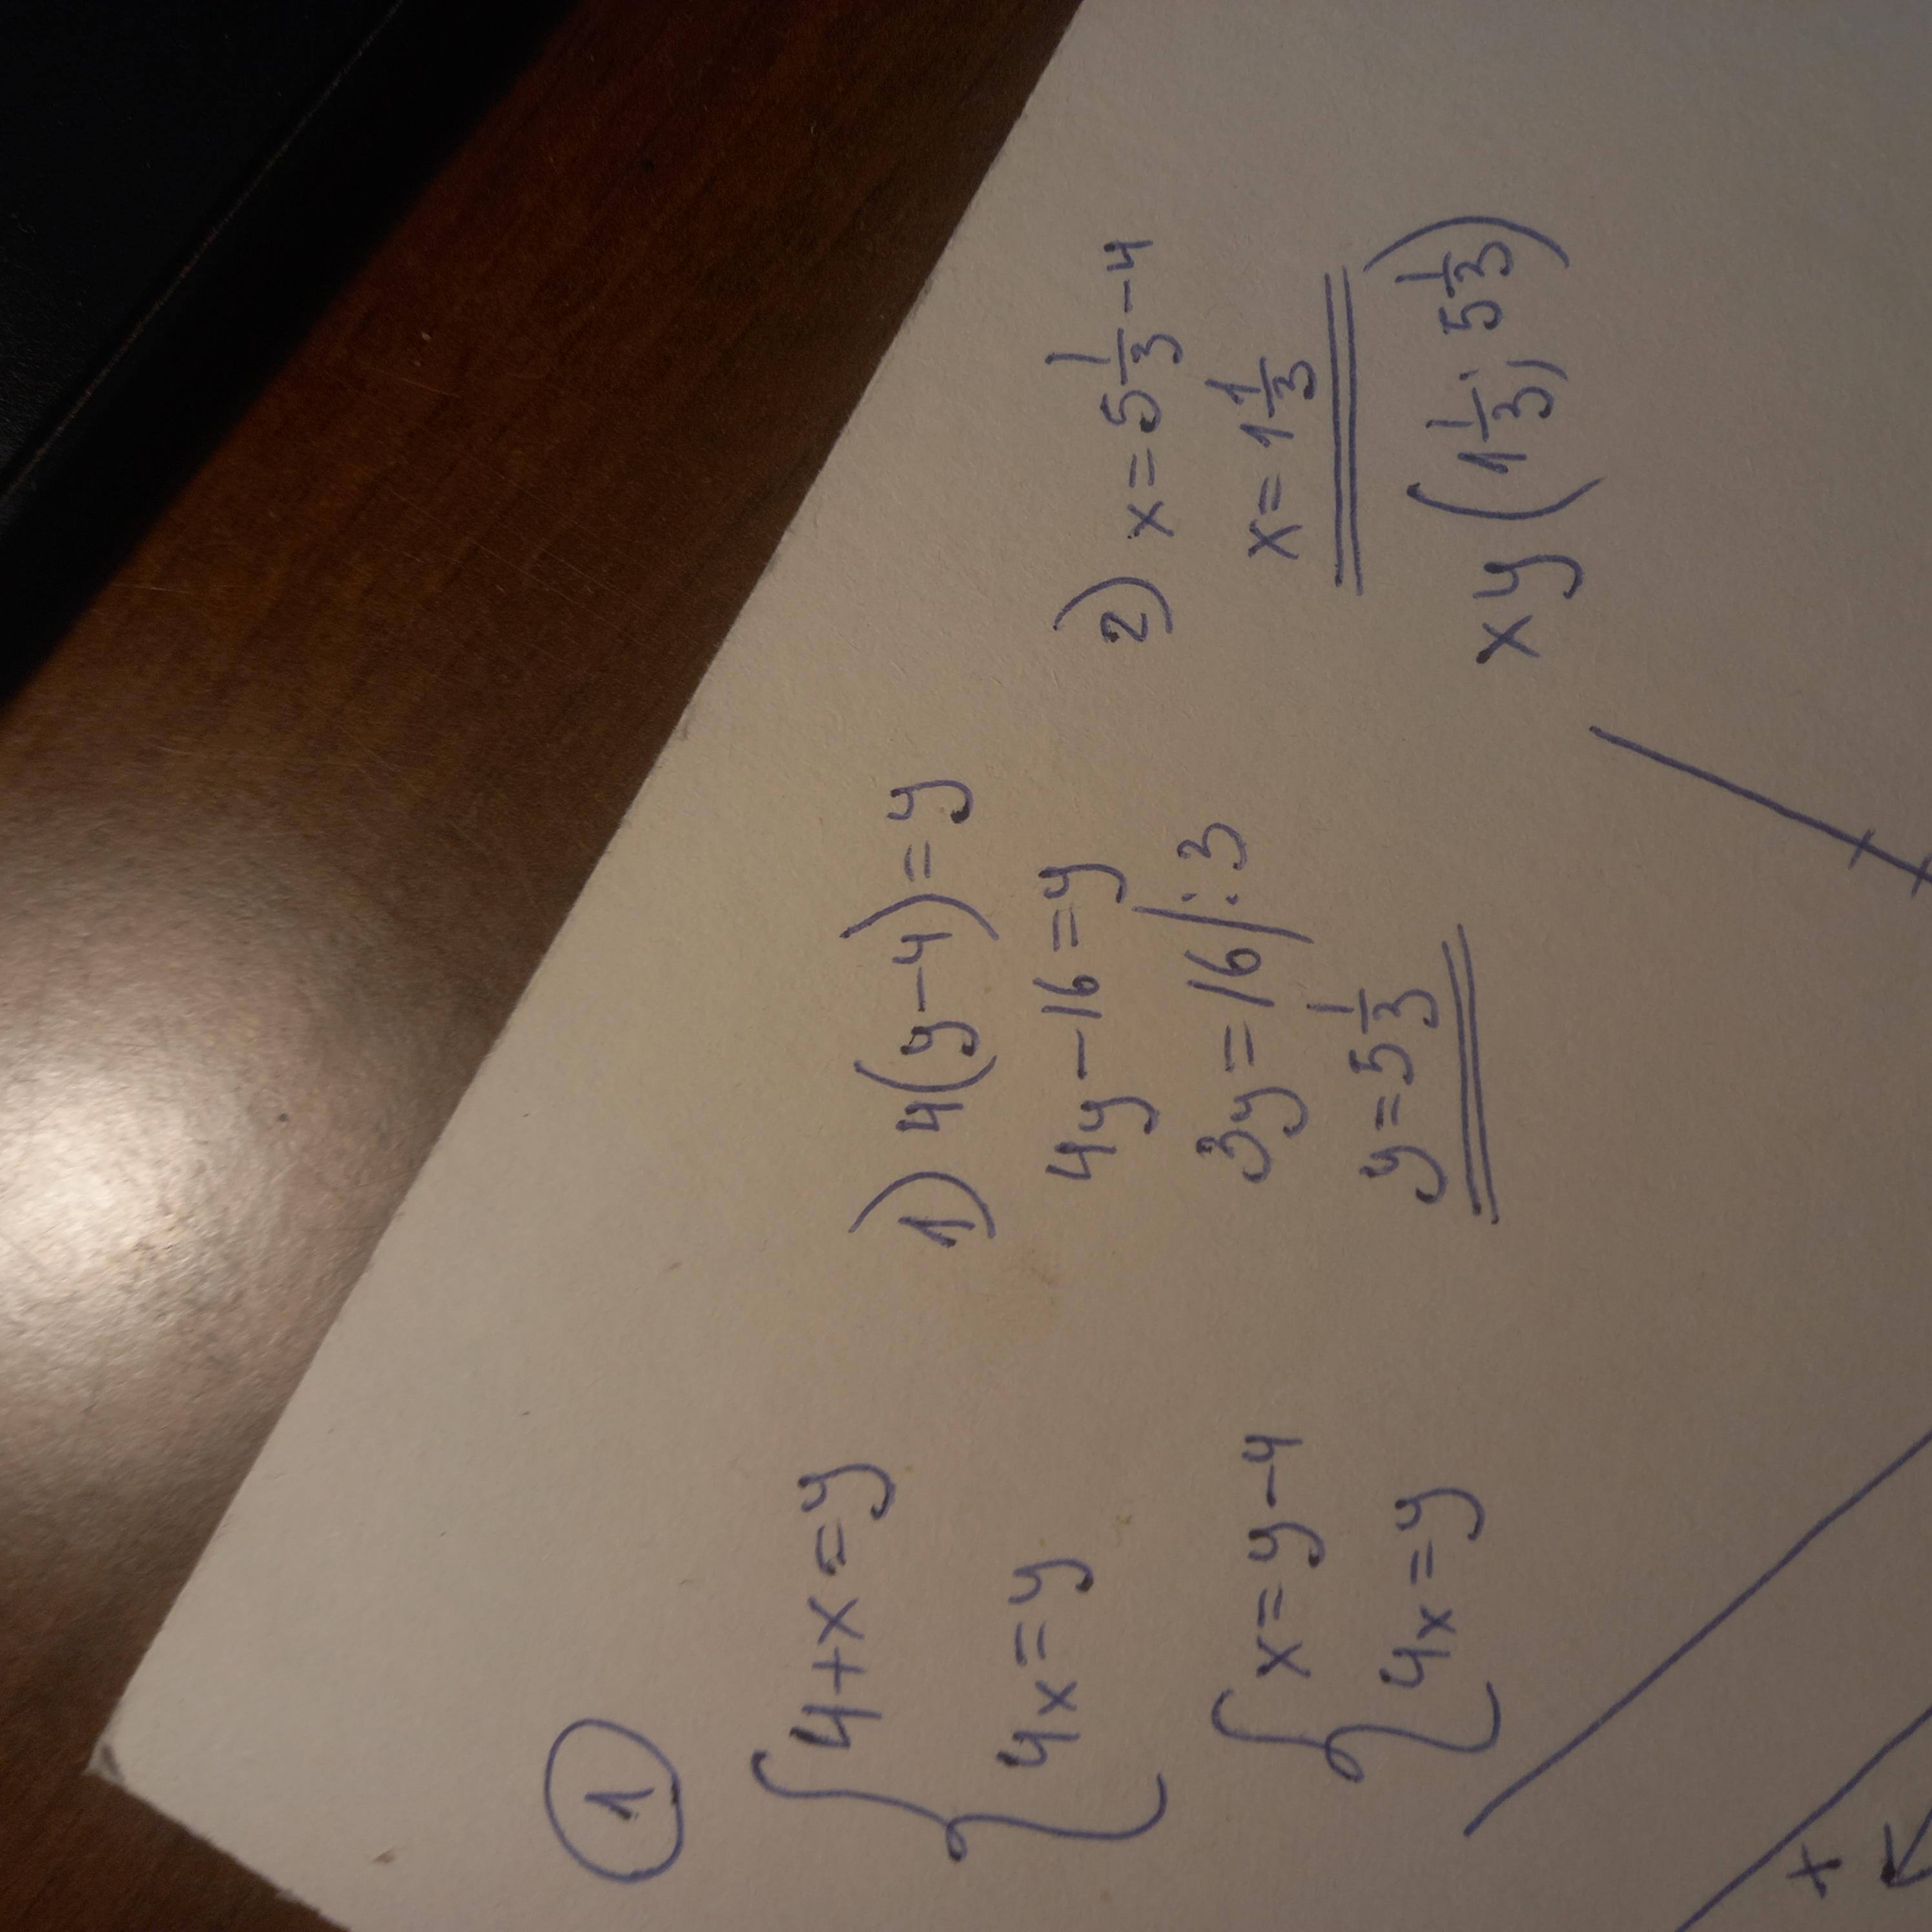 1
4+x=y
4x=y
x=y-4
4x=y
1) 4(y-4)=y
4y-16=y
3y=16/:3
y=5 1/3
2) x=5 1/3-4
x=1 1/3
xy(1 1/3; 5 1/3)
x